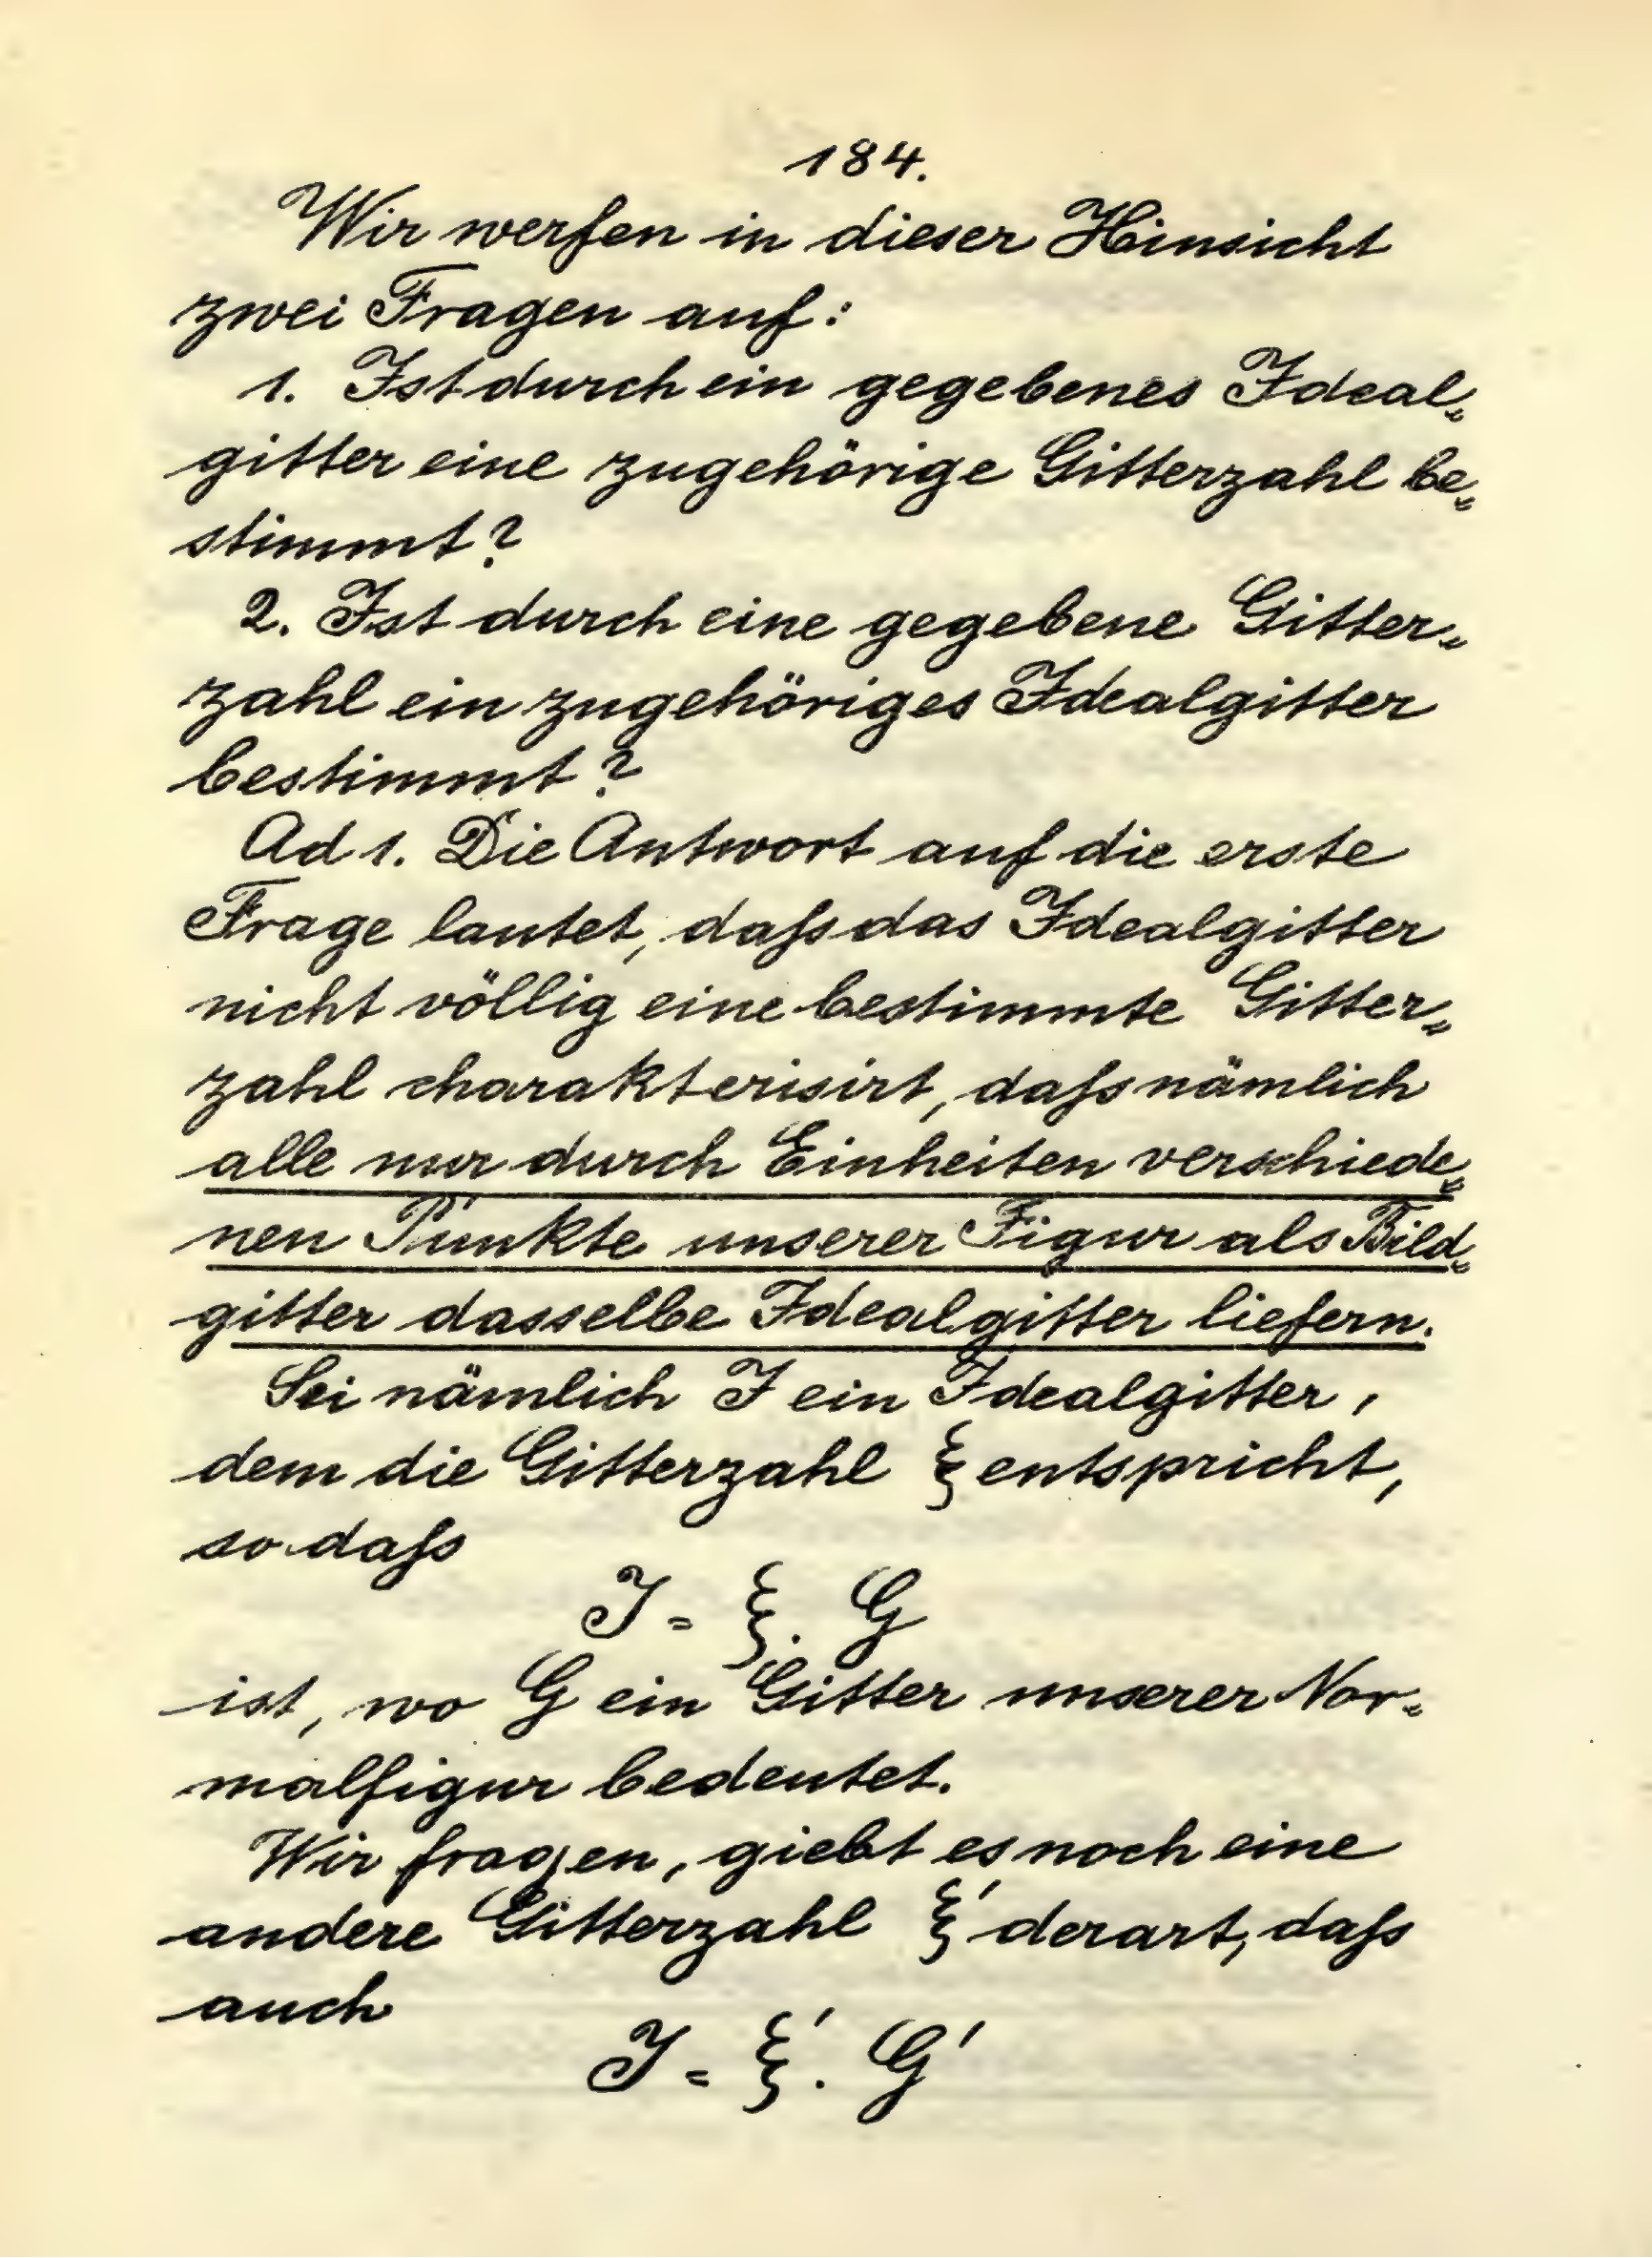 184.
Wir werfen in dieser Hinsicht
zwei Fragen auf:
1. Ist durch ein gegebenes Ideal„
gitter eine zugehörige Gitterzahl be„
stimmt?
2. Ist durch eine gegebene Gitter„
zahl ein zugehöriges Idealgitter
bestimmt?
Ad 1. Die Antwort auf die erste
Frage lautet, daſs das Idealgitter
nicht völlig eine bestimmte Gitter„
zahl charakterisirt, daſs nämlich
alle nur durch Einheiten verschiede„
nen Punkte unserer Figur als Bild„
gitter dasselbe Idealgitter liefern.
Sei nämlich J ein Idealgitter,
dem die Gitterzahl ξ entspricht,
so daſs
J = ξ. G
ist, wo G ein Gitter unserer Nor„
malfigur bedeutet.
Wir fragen, giebt es noch eine
andere Gitterzahl ξ' derart, daſs
auch
J = ξ'. G'